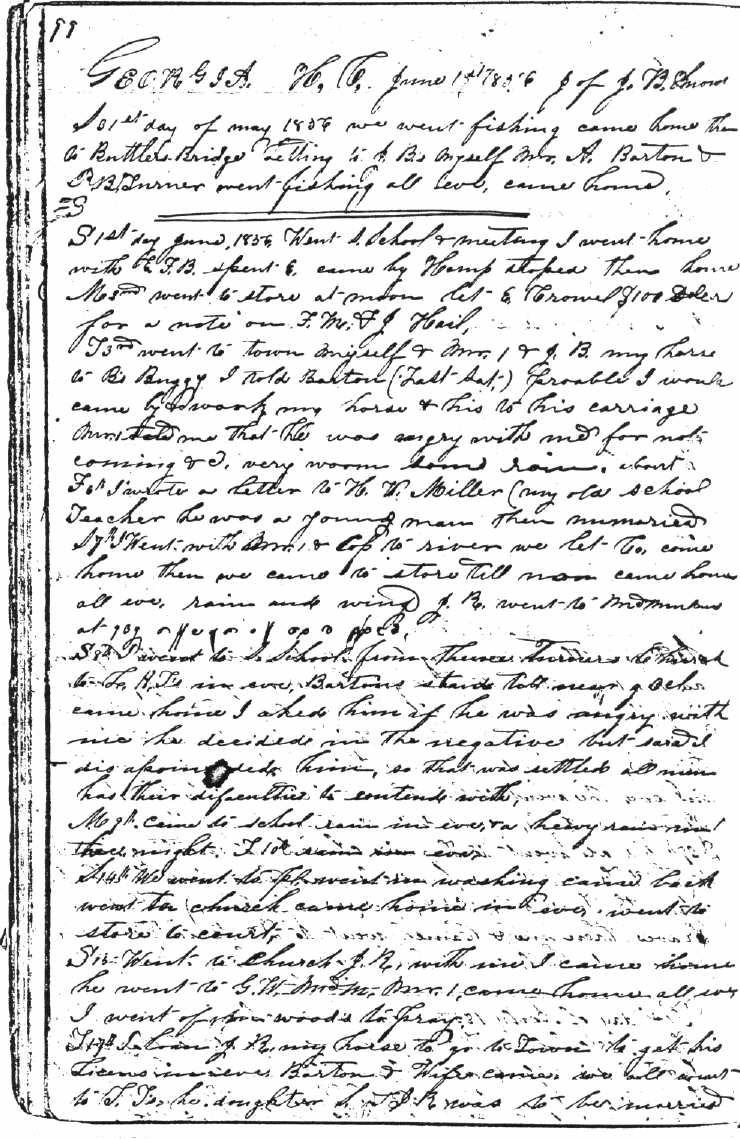 99
GEORGIA. H, C, June 1st 1856 J of J. B. Snow
S 31st day of may 1856 we went fishing came home then
to Buttlers Bridge setting to J. Bs Myself Mr. A. Barton &
P B Turner went fishing all eve, came home,
S 1st day June, 1856 Went S. School & meeting I went home
with E. F. B. spent E, came by Hamp stoped then home
M 2nd went to store at noon let E Crowel $100 Doler
for a note on F. M. & J Hail,
T 3rd went to town Myself & Mr. 1 & J. B. my horse
to Bs Buggy I told Barton (Last Sat,) Proable I would
came by & work my horse & his to his carriage
Mr 1 told me that he was angry with me for not
coming & C, very worm some rain, about
F 6th I wrote a letter to H. W. Miller (my old School
Teacher he was a young man then unmaried
S 7th I Went with Mr. 1 & to river we let come
home then we came to store till noon came home
all eve, rain and wind J. R. went to
at
S 8th I went to S. School from thence Turners
to in eve, Bartons near
came home I aked him if he was angry with
me he decided in the negative but said I
disapoin ded him, so that was settled all men
has their dificulties to contend with,
M 9th came to school rain in eve, & a hevy rain
the night. T 10th rain in eve,
S 14th We went to went in washing came back
went to church came home in eve went to
store to court,
S 15 Went to Church J. R, with me I came home
he went to G. W. Mr. 1, came home all eve
I went of in woods to Pray
T 17th I loan J. R, my horse to go to Town to get his
Licens in eve Barton & Wife came we all went
to T. Ts, he daughter S. T & J R was to be married